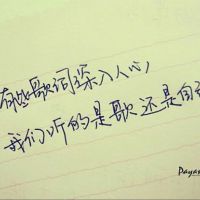 有些歌词深入人心
我们听的是歌还是自
Payas